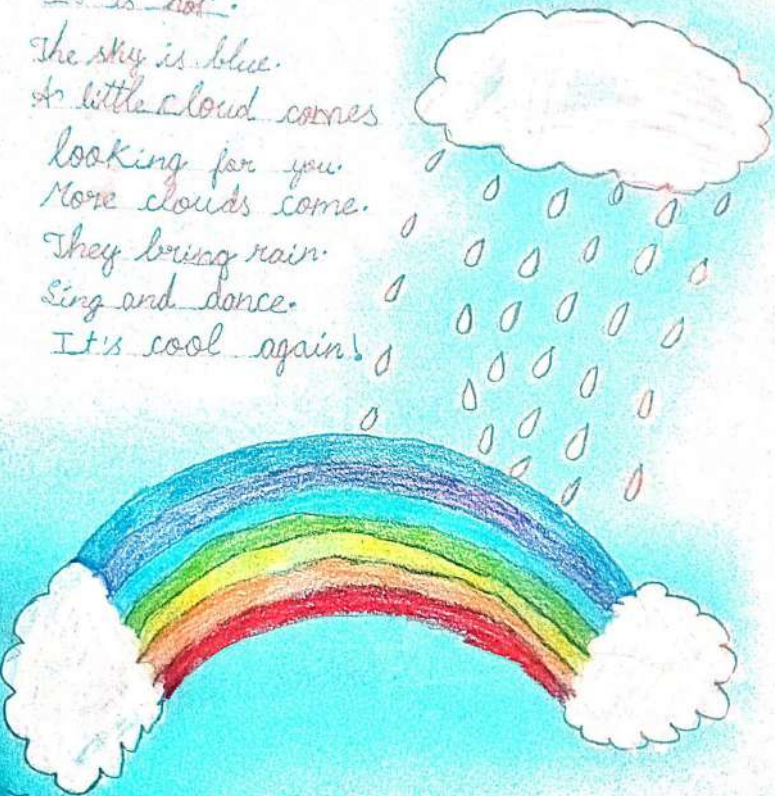 It is hot.
The sky is blue.
A little cloud comes
looking for you.
More clouds come.
They bring rain.
Sing and dance.
It's cool again!